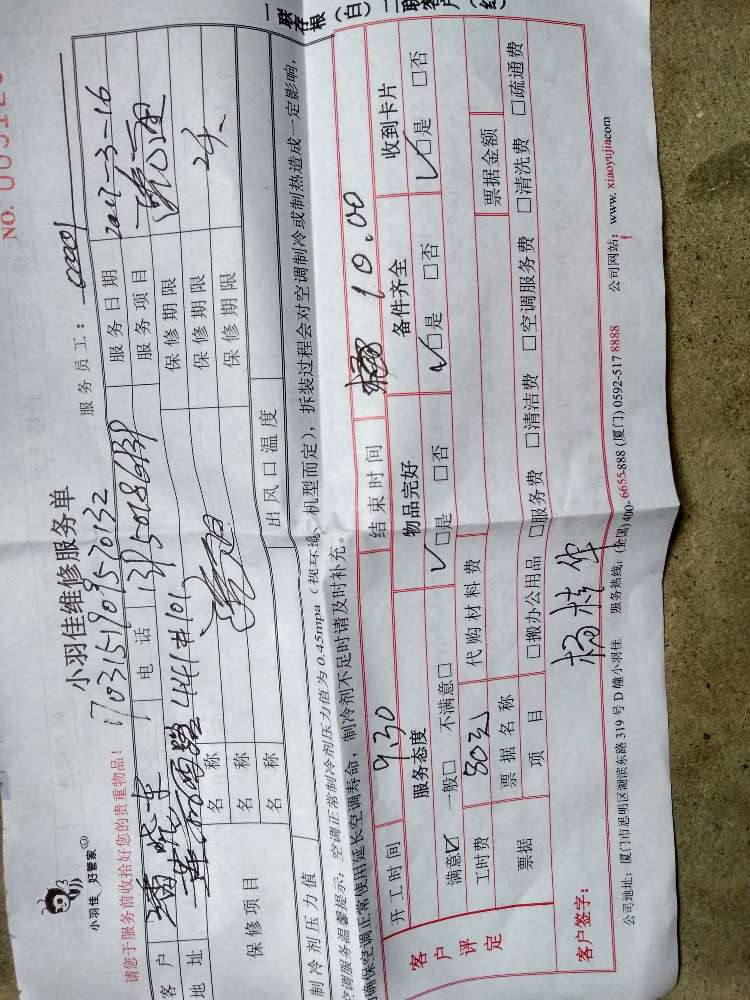 一联存根(白) 二联客户(红)
NO.
小羽佳 好管家
小羽佳维修服务单
1703151909570132
请您于服务前收拾好您的贵重物品！
服务员工：
客户 电话 服务日期 2017-3-16
地址 441#101 服务项目
保修项目 名称 保修期限
名称 保修期限
名称 保修期限
制冷剂压力值 出风口温度
空调服务温馨提示：空调正常制冷剂压力值为0.45mpa（视环境、机型而定），拆装过程会对空调制冷或制热造成一定影响，
确保空调正常使用延长空调寿命，制冷剂不足时请及时补充。
开工时间 9.30 结束时间 10.00
客户评定 服务态度 物品完好 备件齐全 收到卡片
满意☑ 一般□ 不满意□ ☑是 □否 ☑是 □否 ☑是 □否
工时费 80元 代购材料费
票据 票据名称 票据金额
项目 □搬办公用品 □服务费 □清洁费 □空调服务费 □清洗费 □疏通费
客户签字： 杨桂华
公司地址：厦门市思明区湖滨东路319号D幢小羽佳 服务热线：(全国)400-6655-888 (厦门)0592-517 8888 公司网站：www.xiaoyujia.com